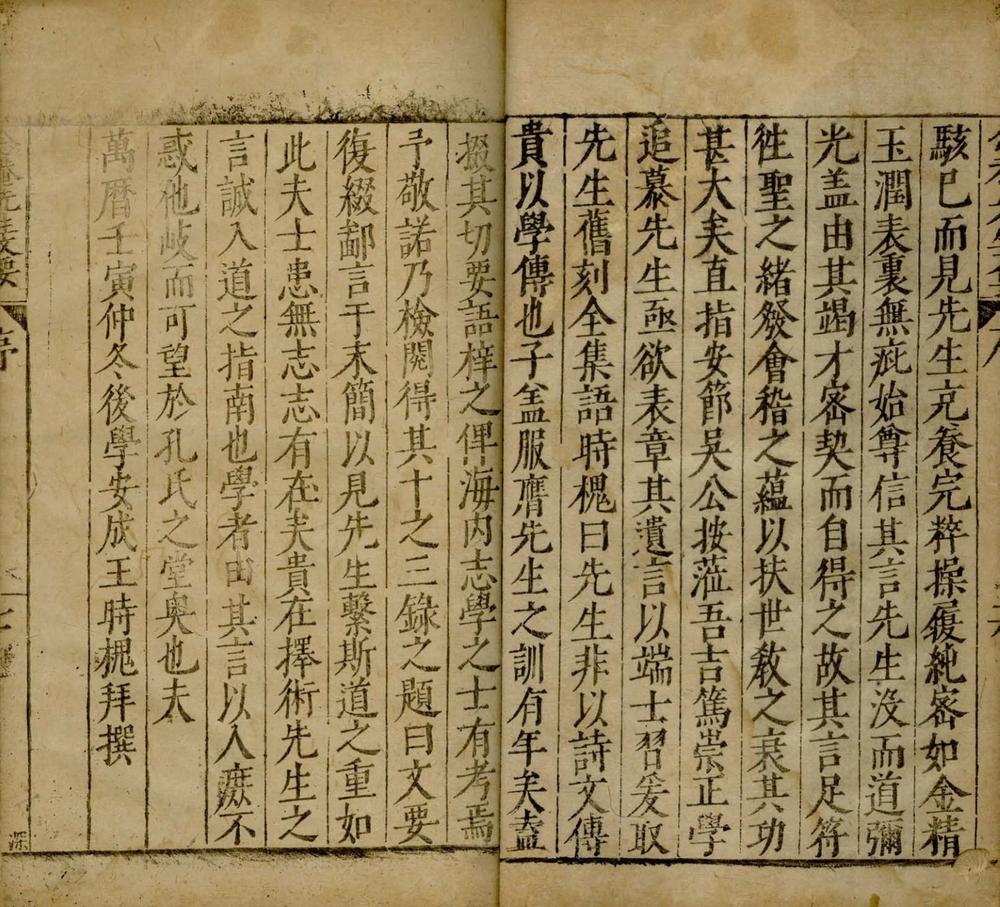 駭已而見先生充養完粹操履純密如金精
玉潤表裏無疵始尊信其言先生沒而道彌
光盖由其竭才密契而自得之故其言足符
徃聖之緒發會稽之蘊以扶世教之衰其功
甚大矣直指安節吳公按蒞吾吉篤崇正學
追慕先生亟欲表章其遺言以端士習爰取
先生舊刻全集語時槐曰先生非以詩文傳
貴以學傳也子盖服膺先生之訓有年矣盍
掇其切要語梓之俾海内志學之士有考焉
予敬諾乃檢閱得其十之三錄之題曰文要
復綴鄙言于末簡以見先生繫斯道之重如
此夫士患無志志有在夫貴在擇術先生之
言誠入道之指南也學者由其言以入庶不
惑他岐而可望於孔氏之堂奥也夫
萬曆壬寅仲冬後學安成王時槐拜撰
序
七